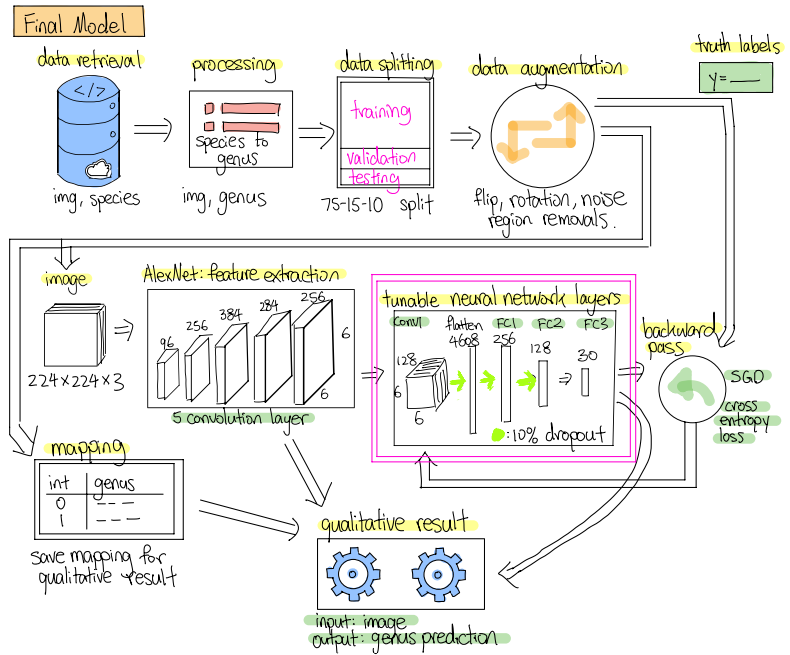 Final Model
data retrieval
</>
img, species
processing
species to
genus
img, genus
data splitting
training
validation
testing
75-15-10 split
data augmentation
flip, rotation, noise
region removals.
truth labels
y=
image
224×224×3
AlexNet: feature extraction
96
256
384
284
256
6
6
5 convolution layer
tunable neural network layers
Conv1
128
6
6
flatten
4608
FC1
256
FC2
128
FC3
30
: 10% dropout
backward
pass
SGD
cross
entropy
loss
mapping
int genus
0
1
save mapping for
qualitative result
qualitative result
input: image
output: genus prediction